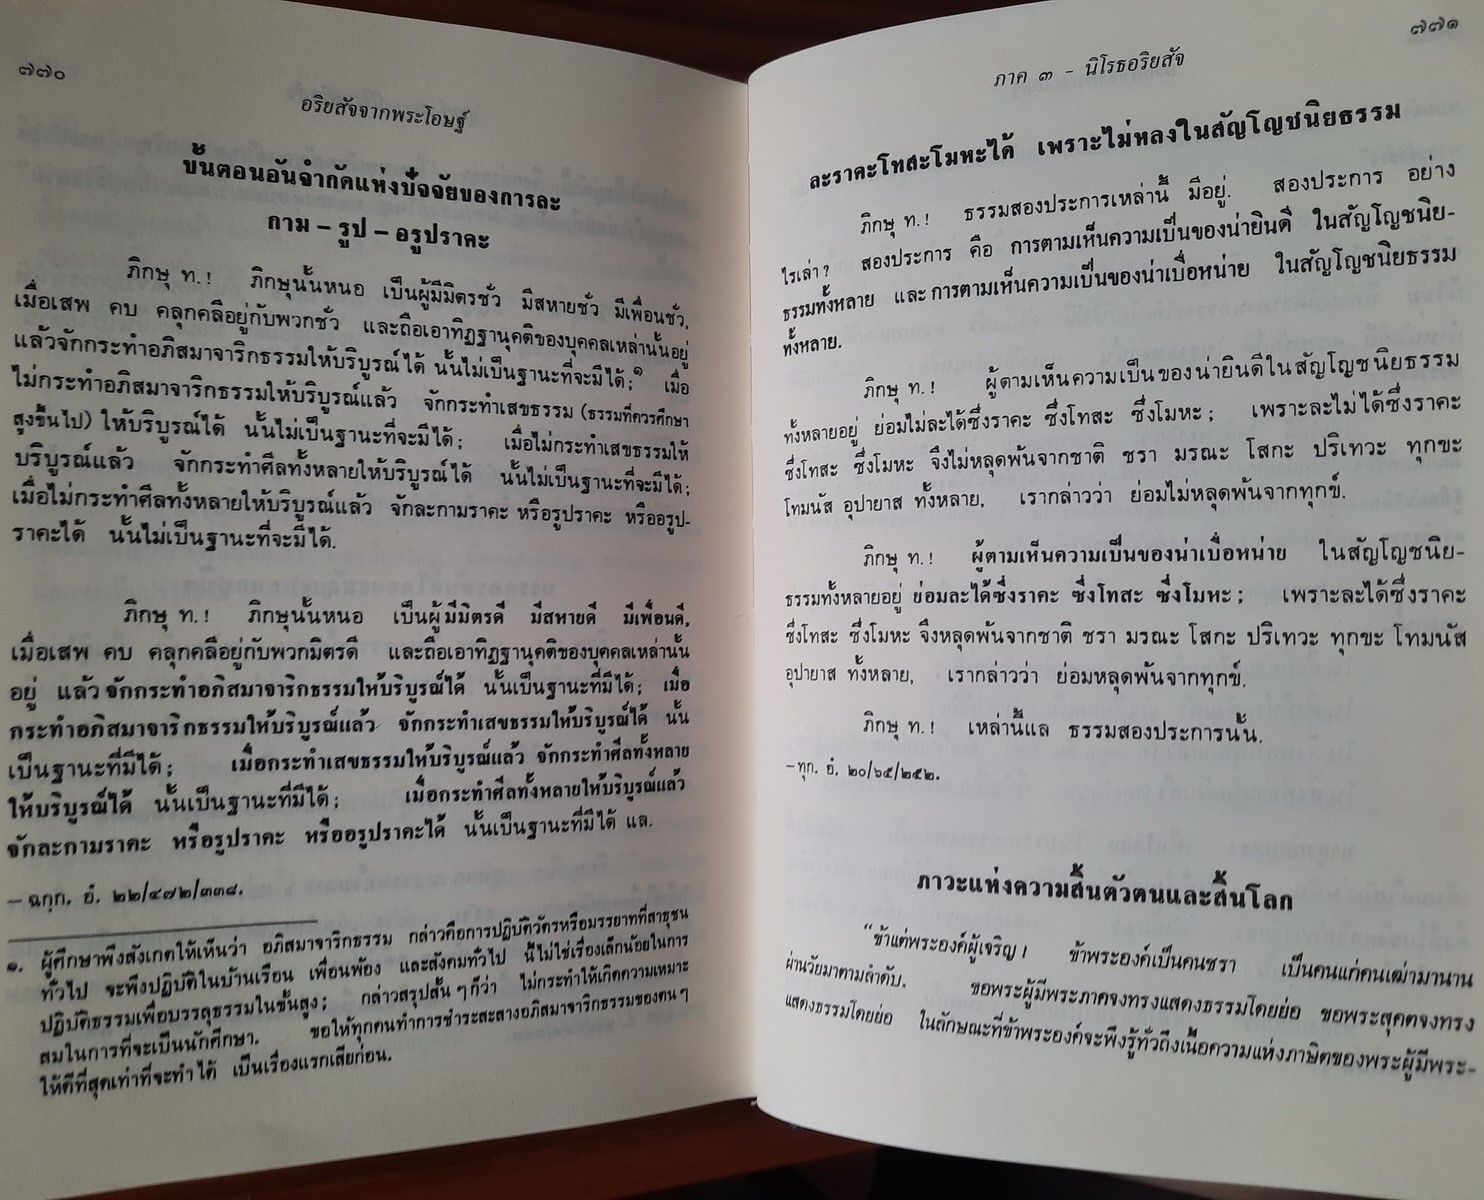 ๗๗๐
อริยสัจจากพระโอษฐ์
ขั้นตอนอันจำกัดแห่งปัจจัยของการละ
กาม – รูป – อรูปราคะ
ภิกษุ ท.! ภิกษุนั้นหนอ เป็นผู้มีมิตรชั่ว มีสหายชั่ว มีเพื่อนชั่ว,
เมื่อเสพ คบ คลุกคลีอยู่กับพวกชั่ว และถือเอาทิฏฐานุคติของบุคคลเหล่านั้นอยู่
แล้วจักกระทำอภิสมาจาริกธรรมให้บริบูรณ์ได้ นั้นไม่เป็นฐานะที่จะมีได้;๑ เมื่อ
ไม่กระทำอภิสมาจาริกธรรมให้บริบูรณ์แล้ว จักกระทำเสขธรรม (ธรรมที่ควรศึกษา
สูงขึ้นไป) ให้บริบูรณ์ได้ นั้นไม่เป็นฐานะที่จะมีได้; เมื่อไม่กระทำเสขธรรมให้
บริบูรณ์แล้ว จักกระทำศีลทั้งหลายให้บริบูรณ์ได้ นั้นไม่เป็นฐานะที่จะมีได้;
เมื่อไม่กระทำศีลทั้งหลายให้บริบูรณ์แล้ว จักละกามราคะ หรือรูปราคะ หรืออรูป-
ราคะได้ นั้นไม่เป็นฐานะที่จะมีได้.
ภิกษุ ท.! ภิกษุนั้นหนอ เป็นผู้มีมิตรดี มีสหายดี มีเพื่อนดี,
เมื่อเสพ คบ คลุกคลีอยู่กับพวกมิตรดี และถือเอาทิฏฐานุคติของบุคคลเหล่านั้น
อยู่ แล้วจักกระทำอภิสมาจาริกธรรมให้บริบูรณ์ได้ นั้นเป็นฐานะที่มีได้; เมื่อ
กระทำอภิสมาจาริกธรรมให้บริบูรณ์แล้ว จักกระทำเสขธรรมให้บริบูรณ์ได้ นั้น
เป็นฐานะที่มีได้; เมื่อกระทำเสขธรรมให้บริบูรณ์แล้ว จักกระทำศีลทั้งหลาย
ให้บริบูรณ์ได้ นั้นเป็นฐานะที่มีได้; เมื่อกระทำศีลทั้งหลายให้บริบูรณ์แล้ว
จักละกามราคะ หรือรูปราคะ หรืออรูปราคะได้ นั้นเป็นฐานะที่มีได้ แล.
– ฉกฺก. อํ. ๒๒/๔๗๒/๓๓๘.
๑. ผู้ศึกษาพึงสังเกตให้เห็นว่า อภิสมาจาริกธรรม กล่าวคือการปฏิบัติวัตรหรือมรรยาทที่สาธุชน
ทั่วไป จะพึงปฏิบัติในบ้านเรือน เพื่อนพ้อง และสังคมทั่วไป นี้ไม่ใช่เรื่องเล็กน้อยในการ
ปฏิบัติธรรมเพื่อบรรลุธรรมในชั้นสูง; กล่าวสรุปสั้น ๆ ก็ว่า ไม่กระทำให้เกิดความเหมาะ
สมในการที่จะเป็นนักศึกษา. ขอให้ทุกคนทำการชำระสะสางอภิสมาจาริกธรรมของตน ๆ
ให้ดีที่สุดเท่าที่จะทำได้ เป็นเรื่องแรกเสียก่อน.
๗๗๑
ภาค ๓ - นิโรธอริยสัจ
ละราคะโทสะโมหะได้ เพราะไม่หลงในสัญโญชนิยธรรม
ภิกษุ ท.! ธรรมสองประการเหล่านี้ มีอยู่. สองประการ อย่าง
ไรเล่า? สองประการ คือ การตามเห็นความเป็นของน่ายินดี ในสัญโญชนิย-
ธรรมทั้งหลาย และการตามเห็นความเป็นของน่าเบื่อหน่าย ในสัญโญชนิยธรรม
ทั้งหลาย.
ภิกษุ ท.! ผู้ตามเห็นความเป็นของน่ายินดีในสัญโญชนิยธรรม
ทั้งหลายอยู่ ย่อมไม่ละได้ซึ่งราคะ ซึ่งโทสะ ซึ่งโมหะ; เพราะละไม่ได้ซึ่งราคะ
ซึ่งโทสะ ซึ่งโมหะ จึงไม่หลุดพ้นจากชาติ ชรา มรณะ โสกะ ปริเทวะ ทุกขะ
โทมนัส อุปายาส ทั้งหลาย, เรากล่าวว่า ย่อมไม่หลุดพ้นจากทุกข์.
ภิกษุ ท.! ผู้ตามเห็นความเป็นของน่าเบื่อหน่าย ในสัญโญชนิย-
ธรรมทั้งหลายอยู่ ย่อมละได้ซึ่งราคะ ซึ่งโทสะ ซึ่งโมหะ; เพราะละได้ซึ่งราคะ
ซึ่งโทสะ ซึ่งโมหะ จึงหลุดพ้นจากชาติ ชรา มรณะ โสกะ ปริเทวะ ทุกขะ โทมนัส
อุปายาส ทั้งหลาย, เรากล่าวว่า ย่อมหลุดพ้นจากทุกข์.
ภิกษุ ท.! เหล่านี้แล ธรรมสองประการนั้น.
– ทุก. อํ. ๒๐/๖๕/๒๕๒.
ภาวะแห่งความสิ้นตัวตนและสิ้นโลก
“ข้าแต่พระองค์ผู้เจริญ! ข้าพระองค์เป็นคนชรา เป็นคนแก่คนเฒ่ามานาน
ผ่านวัยมาตามลำดับ. ขอพระผู้มีพระภาคจงทรงแสดงธรรมโดยย่อ ขอพระสุคตจงทรง
แสดงธรรมโดยย่อ ในลักษณะที่ข้าพระองค์จะพึงรู้ทั่วถึงเนื้อความแห่งภาษิตของพระผู้มีพระ-